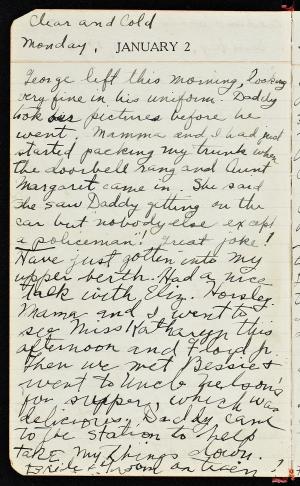 Clear and Cold
Monday, JANUARY 2
George left this morning, looking
very fine in his uniform. Daddy
took our pictures before he
went. Mamma and I had just
started packing my trunk when
the doorbell rang and Aunt
Margaret came in. She said
she saw Daddy getting on the
car but nobody else except
a policeman! Great joke!
Have just gotten into my
upper berth. Had a nice
talk with Eliz. Horsley.
Mama and I went to
see Miss Katharyn this
afternoon and Floyd Jr.
Then we met Bessie &
went to Uncle Nelson's
for supper, which was
delicious. Daddy came
to the station to help
take my things down.
Bride & Groom on train!